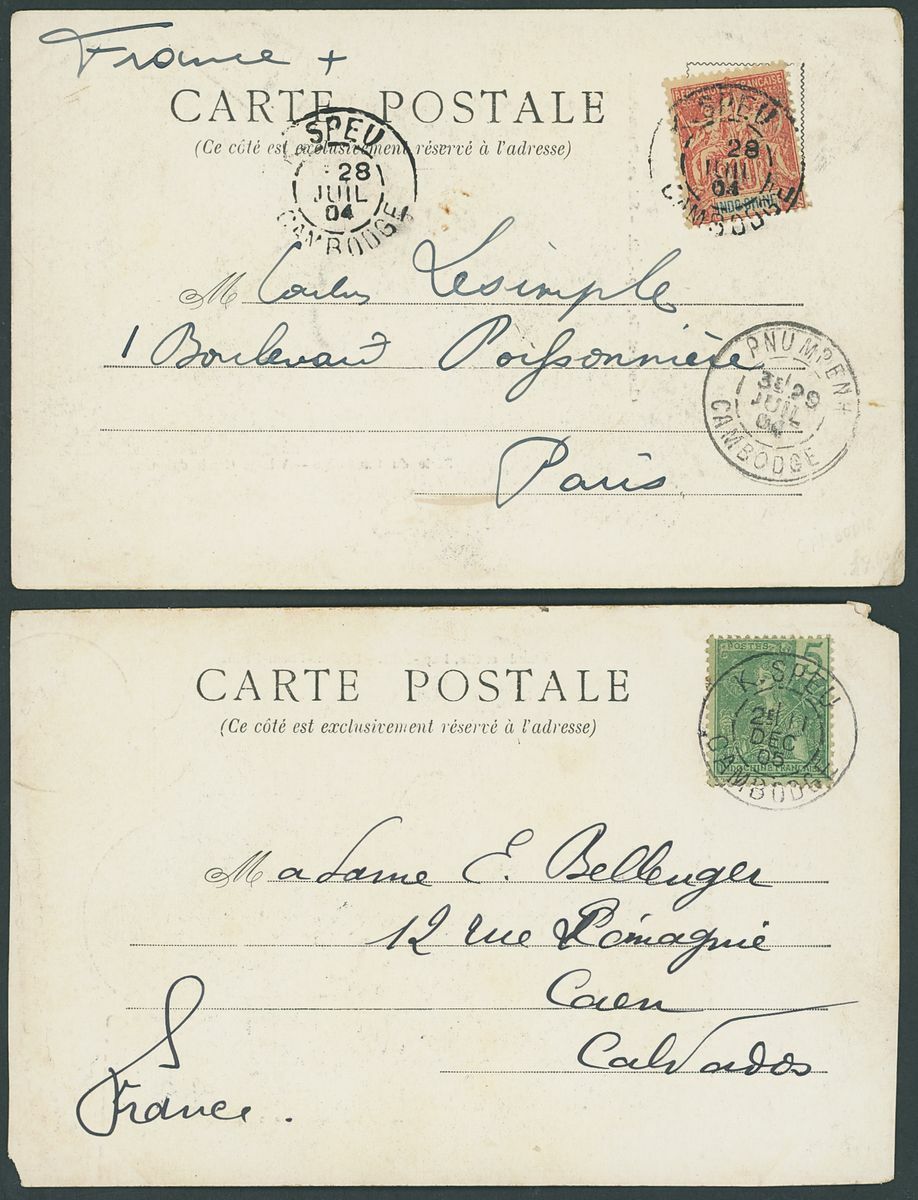 France +
CARTE POSTALE
(Ce côté est exclusivement réservé à l'adresse)
RÉPUBLIQUE FRANÇAISE
INDO-CHINE
K. SPEU
28
JUIL
04
CAMBODGE
SPEU
28
JUIL
04
CAMBODGE
M Lesimple
1 Boulevard Poissonnière
Paris
PNUMPENH
3E 29
JUIL
04
CAMBODGE
CARTE POSTALE
(Ce côté est exclusivement réservé à l'adresse)
POSTES 5
INDOCHINE FRANÇAISE
K. SPEU
2E 11
DEC
05
CAMBODGE
Madame E. Bellenger
12 rue Pémagnie
Caen
Calvados
France.